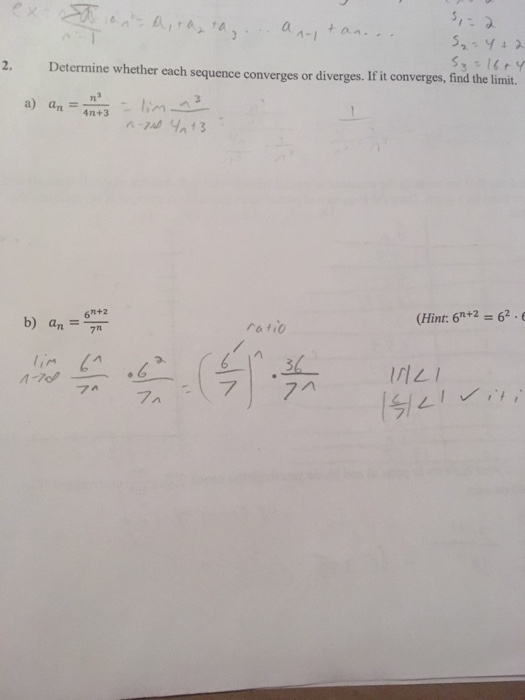 ex: a₁ + a₂ + a₃ ... aₙ₋₁ + aₙ...
n=1
S₁ = 2
S₂ = 4 + 2
S₃ = 16 + 4
2. Determine whether each sequence converges or diverges. If it converges, find the limit.
a) aₙ = n³/(4n+3) = lim n→∞ n³/(4n+3) =
1
b) aₙ = 6ⁿ⁺²/7ⁿ (Hint: 6ⁿ⁺² = 6² ·
ratio
lim n→∞ 6ⁿ/7ⁿ · 6²/7ⁿ = (6/7)ⁿ · 36/7ⁿ
|r| < 1
|6/7| < 1 ✓